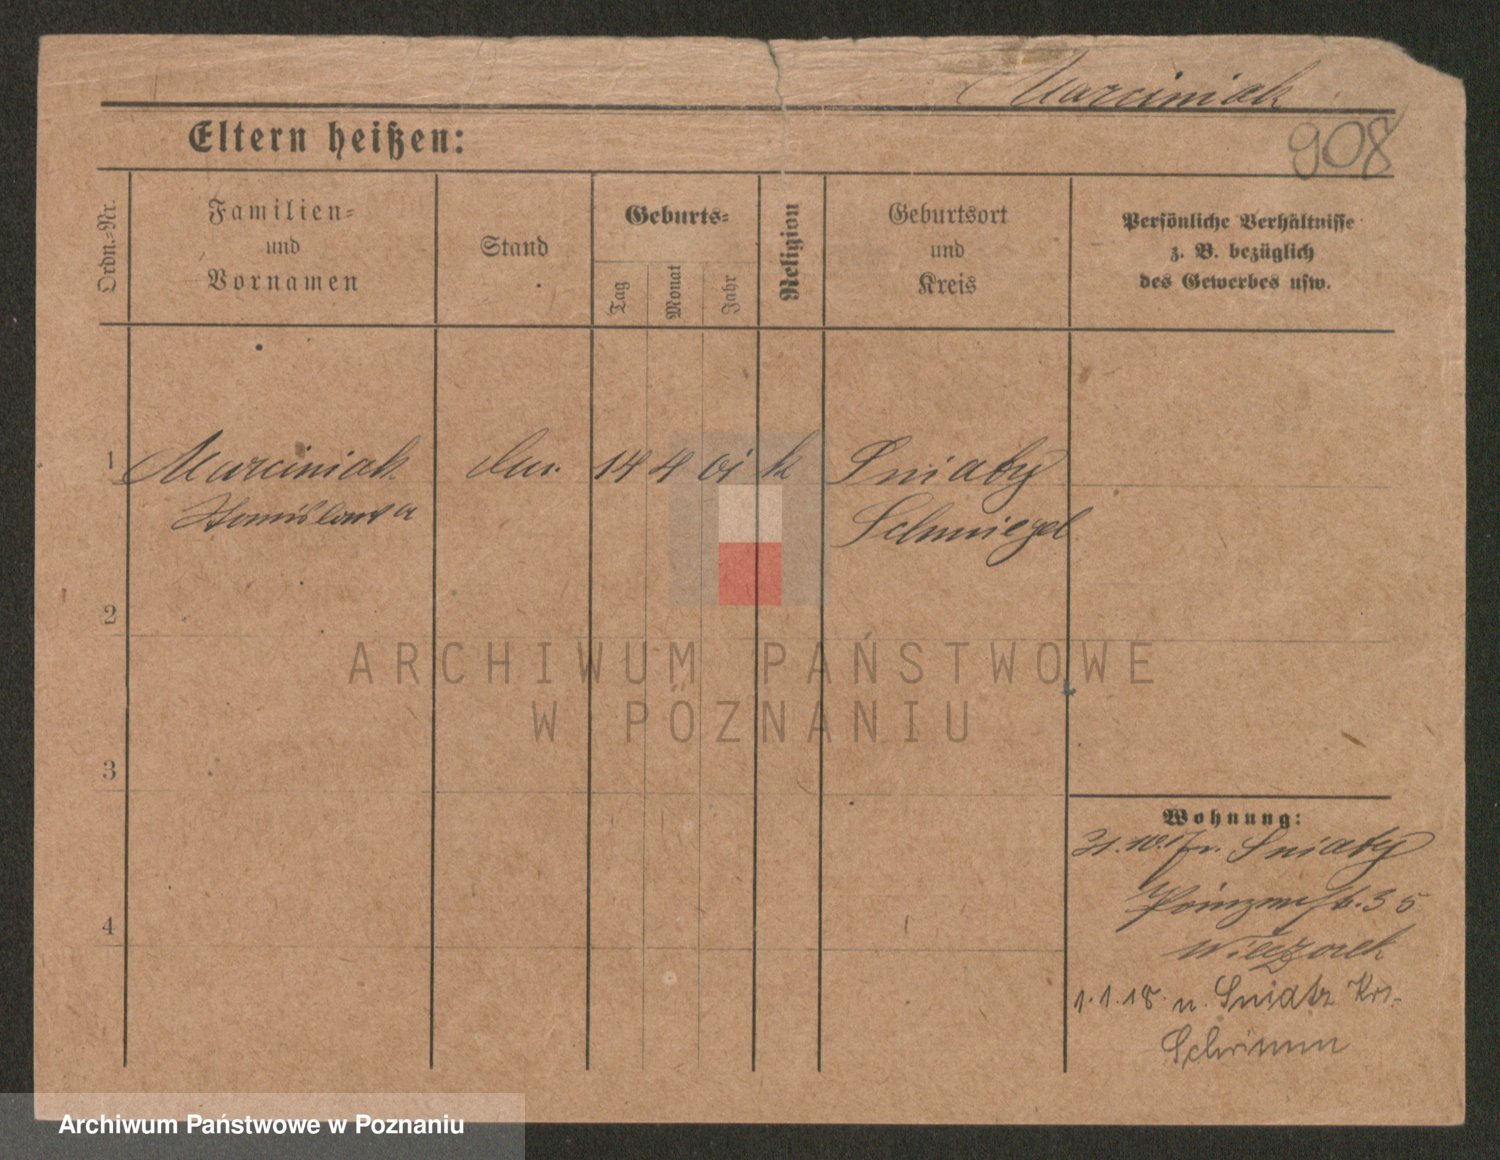 Marciniak
908
Eltern heißen:
Ordn.-Nr.
Familien-
und
Vornamen
Stand
Geburts-
Tag
Monat
Jahr
Religion
Geburtsort
und
Kreis
Persönliche Verhältnisse
z. B. bezüglich
des Gewerbes usw.
1 Marciniak 14 4 01 k Sniaty
Stanislawa Schmiegel
2
ARCHIWUM PAŃSTWOWE
W POZNANIU
3
Wohnung:
31.10.17 Sniaty
35
Wieczorek
4
1.1.18. n. Sniatz Krs.
Schrimm
Archiwum Państwowe w Poznaniu